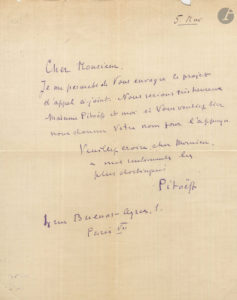 5 Mai
Cher Monsieur,
Je me permets de vous envoyer le projet
d'appel ci-joint. Nous serions très heureux
Madame Pitoëff et moi si vous vouliez bien
nous donner votre nom pour l'appuyer.
Veuillez croire, cher Monsieur,
à mes sentiments les
plus distingués
Pitoëff
4 rue Buenos-Ayres,
Paris VII